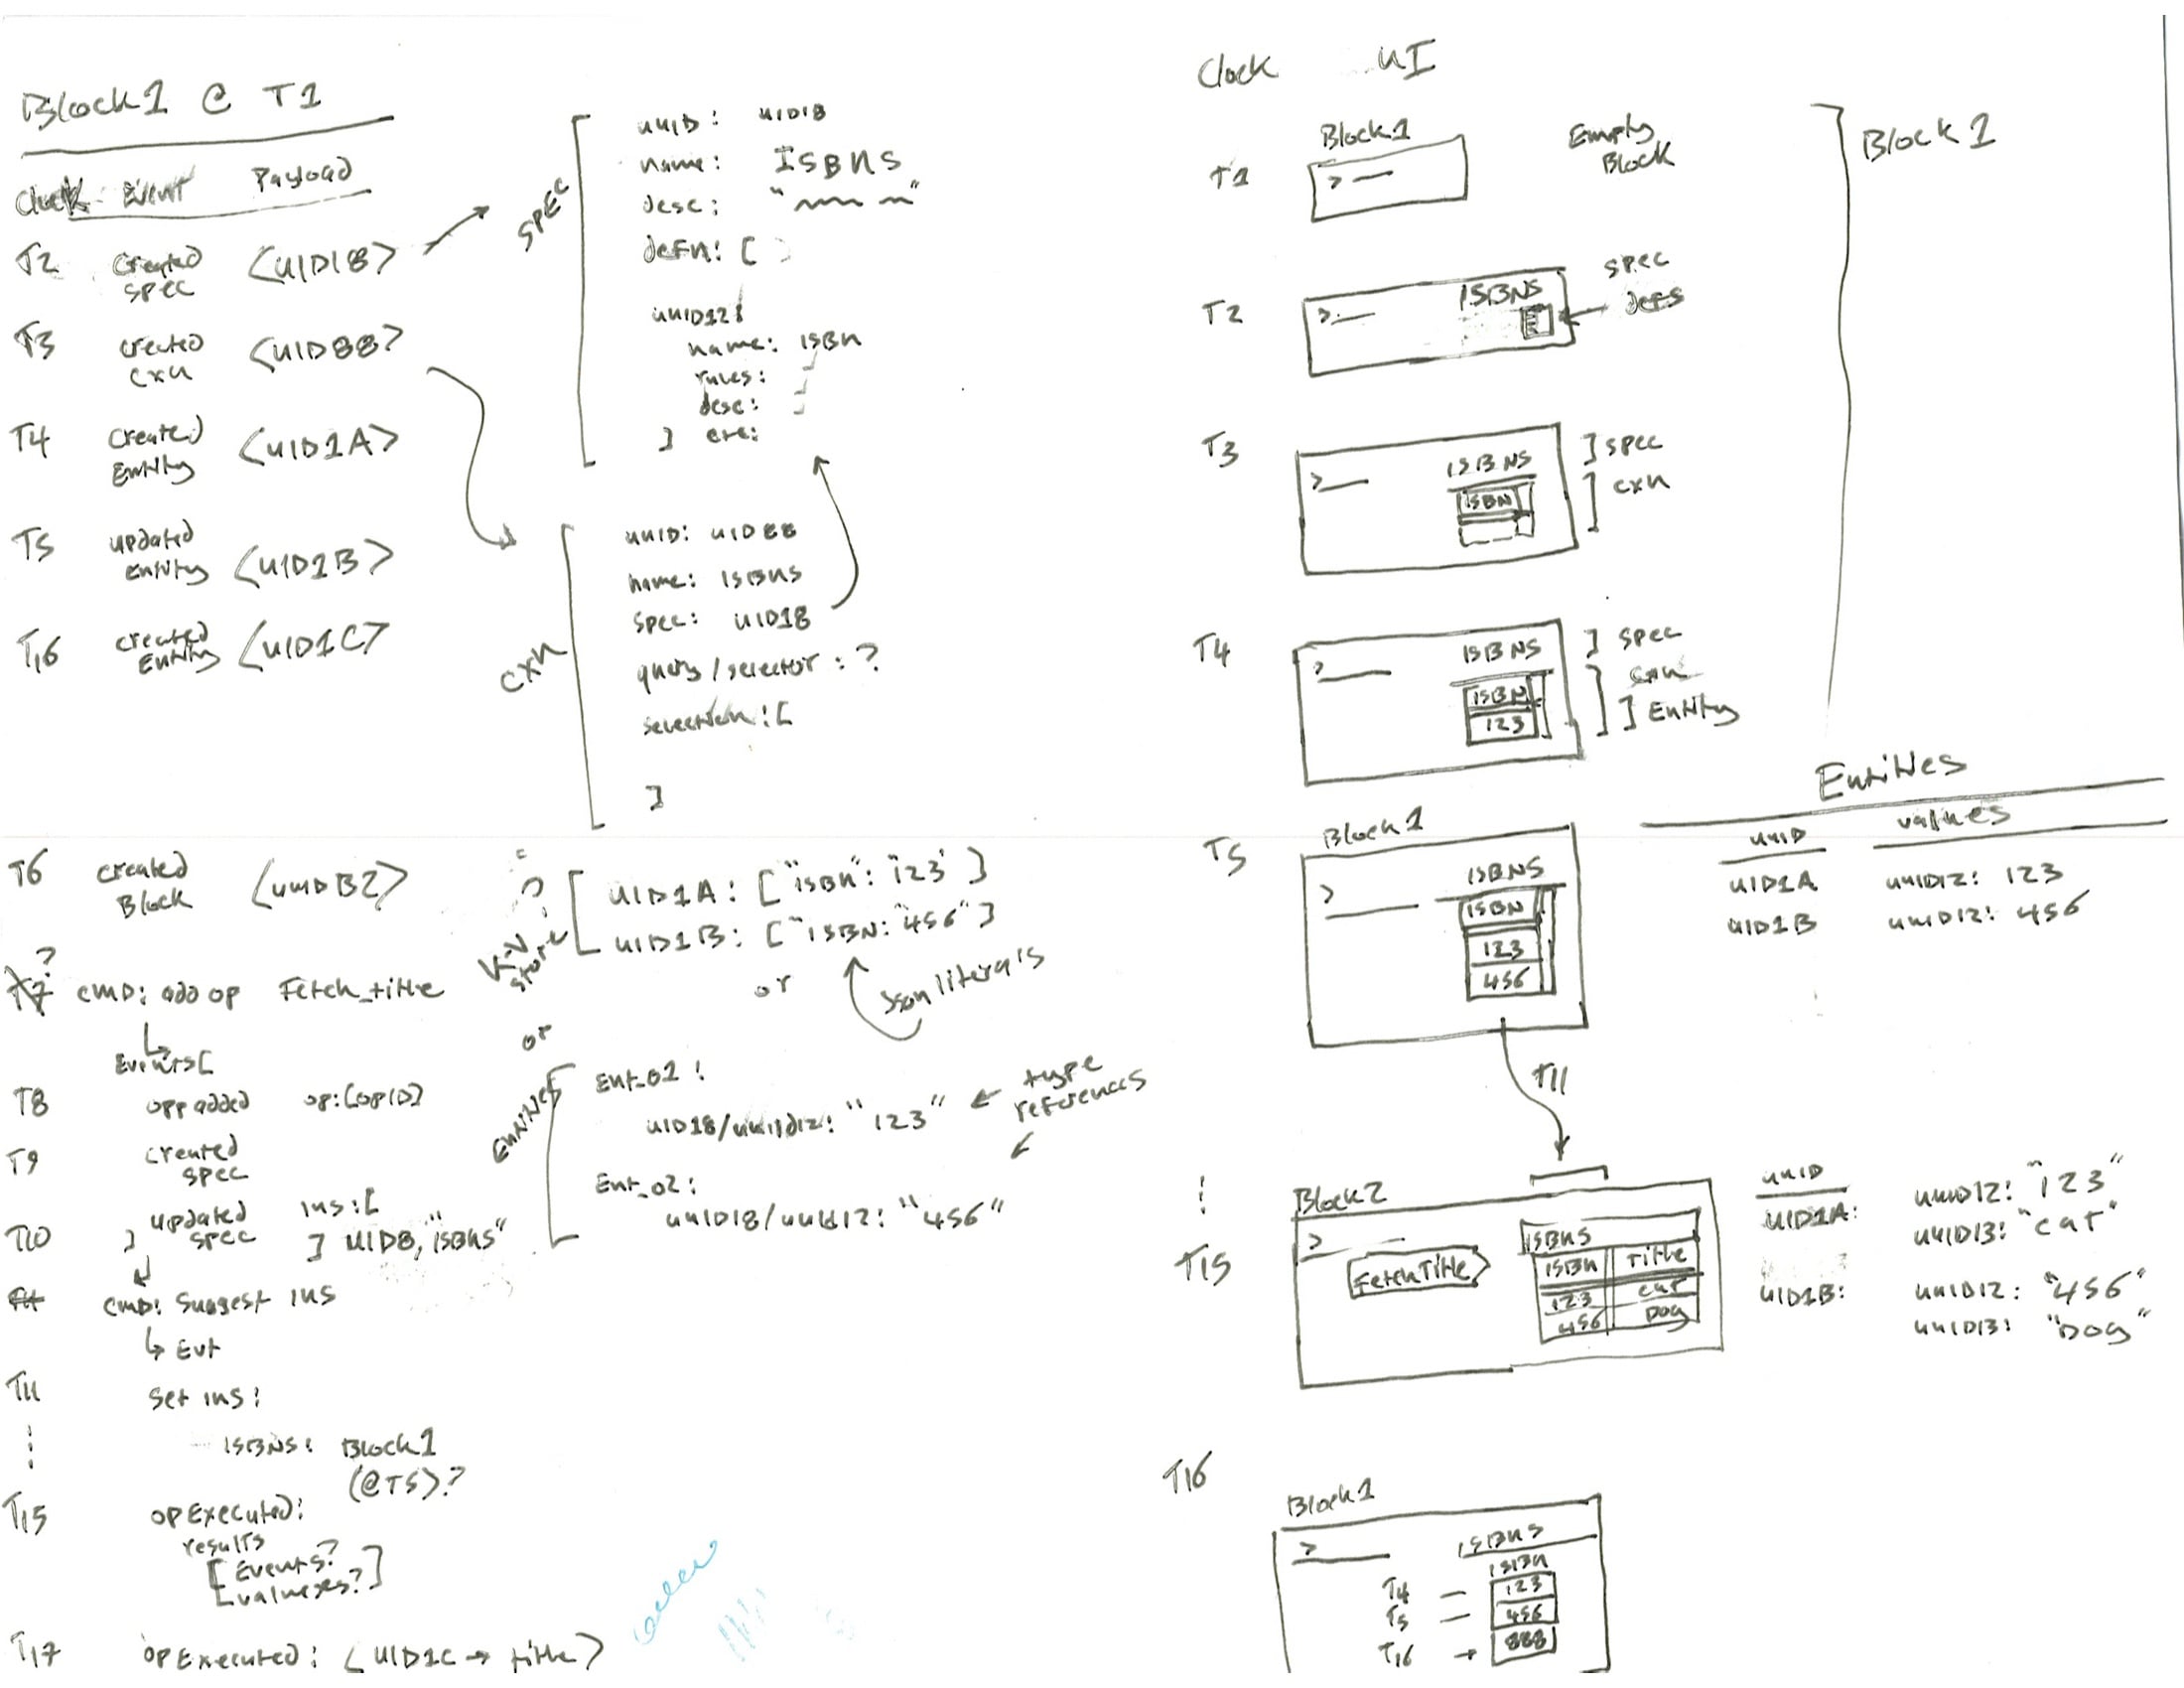 Block1 @ T1
Clock Event Payload
T2 created <UID18>
spec
T3 created <UID88>
cxn
T4 created <UID1A>
Entity
T5 updated <UID1B>
entity
T16 created <UID1C>
Entity
SPEC
uuID: UID18
name: ISBNS
desc: "
defn: [
uuID12:
name: ISBN
rules:
desc:
] etc:
cxn
uuID: UID88
name: ISBNS
spec: UID18
query/selector: ?
selection: [
]
T6 created <uuIDB2>
Block
?
T7 cmD: add op Fetch_title
Events[
T8 opp added op:[opID]
T9 created
spec
T10 ] updated ins:[
spec ] UID8, "ISBNS"
T11 cmD: Suggest ins
Evt
T11 Set ins:
ISBNS: Block1
(@T5)?
T15 opExecuted:
results
[Events?
values?]
T17 opExecuted: <UID1C → title>
K-V store ?
UID1A: ["isbn": "123"]
UID1B: ["ISBN: "456"]
or
Json literals
or
Entities
Ent_01:
UID18/uuid12: "123" ← type references
Ent_02:
uuID18/uuid12: "456"
Clock UI
T1 Block1 Empty
Block
>
Block 1
T2 ISBNS spec
> defs
T3 ISBNS ] spec
> ISBN ] cxn
T4 ISBNS ] spec
> ISBN cxn
123 ] Entity
T5 Block1
ISBNS
>
ISBN
123
456
Entities
uuID values
UID1A uuID12: 123
UID1B uuID12: 456
T11
Block2
T15
>
FetchTitle
ISBNS
ISBN Title
123 cat
456 Dog
uuID
UID1A: uuID12: "123"
uuID13: "cat"
UID1B: uuID12: "456"
uuID13: "Dog"
T16
Block1
> ISBNS
ISBN
T4 — 123
T5 — 456
T16 → 888